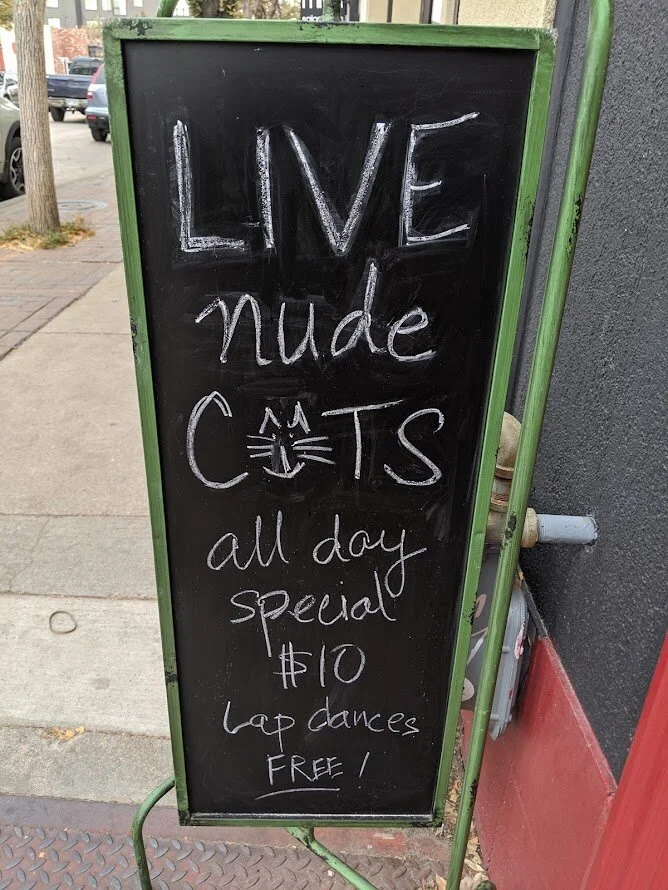 LIVE
nude
CATS
all day
special
$10
Lap dances
FREE!